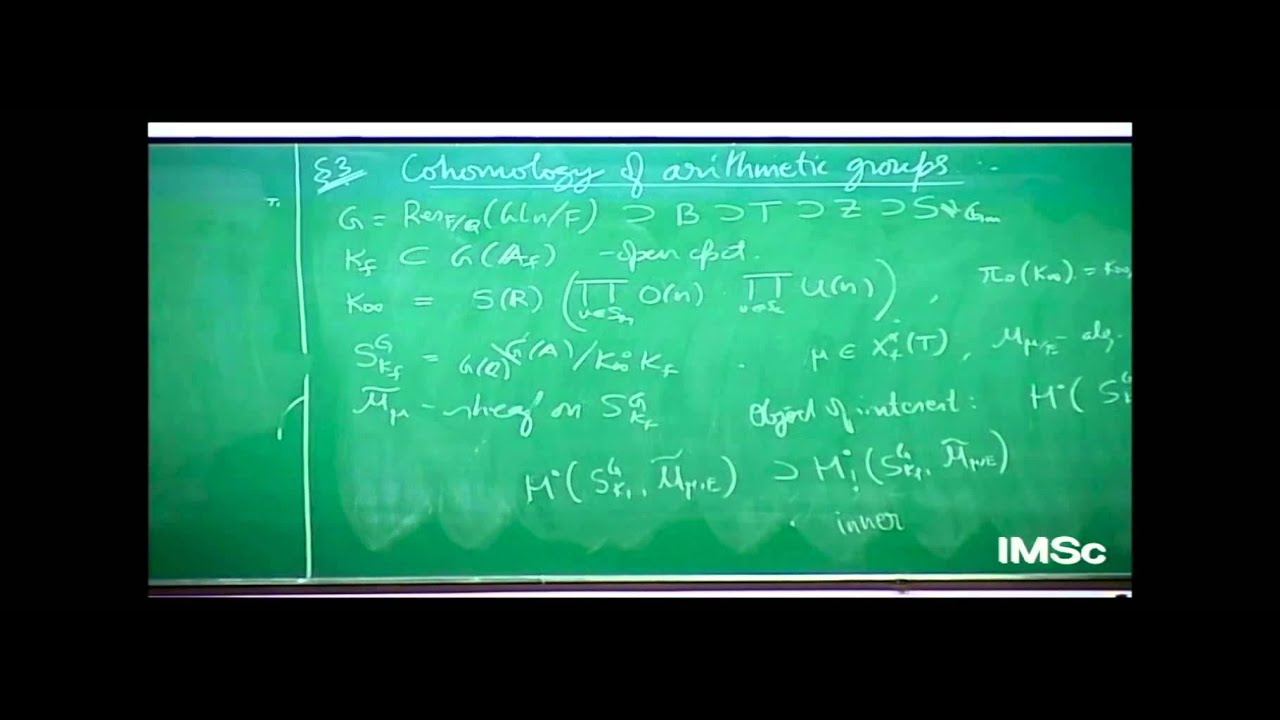 §3 Cohomology of arithmetic groups :-
G = Res_{F/Q}(GLn/F) ⊃ B ⊃ T ⊃ Z ⊃ S ← G_m
K_f ⊂ G(A_f) - open cpct.
K_∞ = S(R) (∏_{v∈S_r} O(n) · ∏_{v∈S_c} U(n)) , π_0(K_∞) = K_∞
S^G_{K_f} = G(Q)\G(A)/K_∞° K_f . μ ∈ X^*_+(T), M_{μ/E} - alg.
M̃_μ - sheaf on S^G_{K_f} Object of interest : H^•( S^G
H^•(S^G_{K_f}, M̃_{μ,E}) ⊃ H^•_!(S^G_{K_f}, M̃_{μ,E})
inner
IMSc